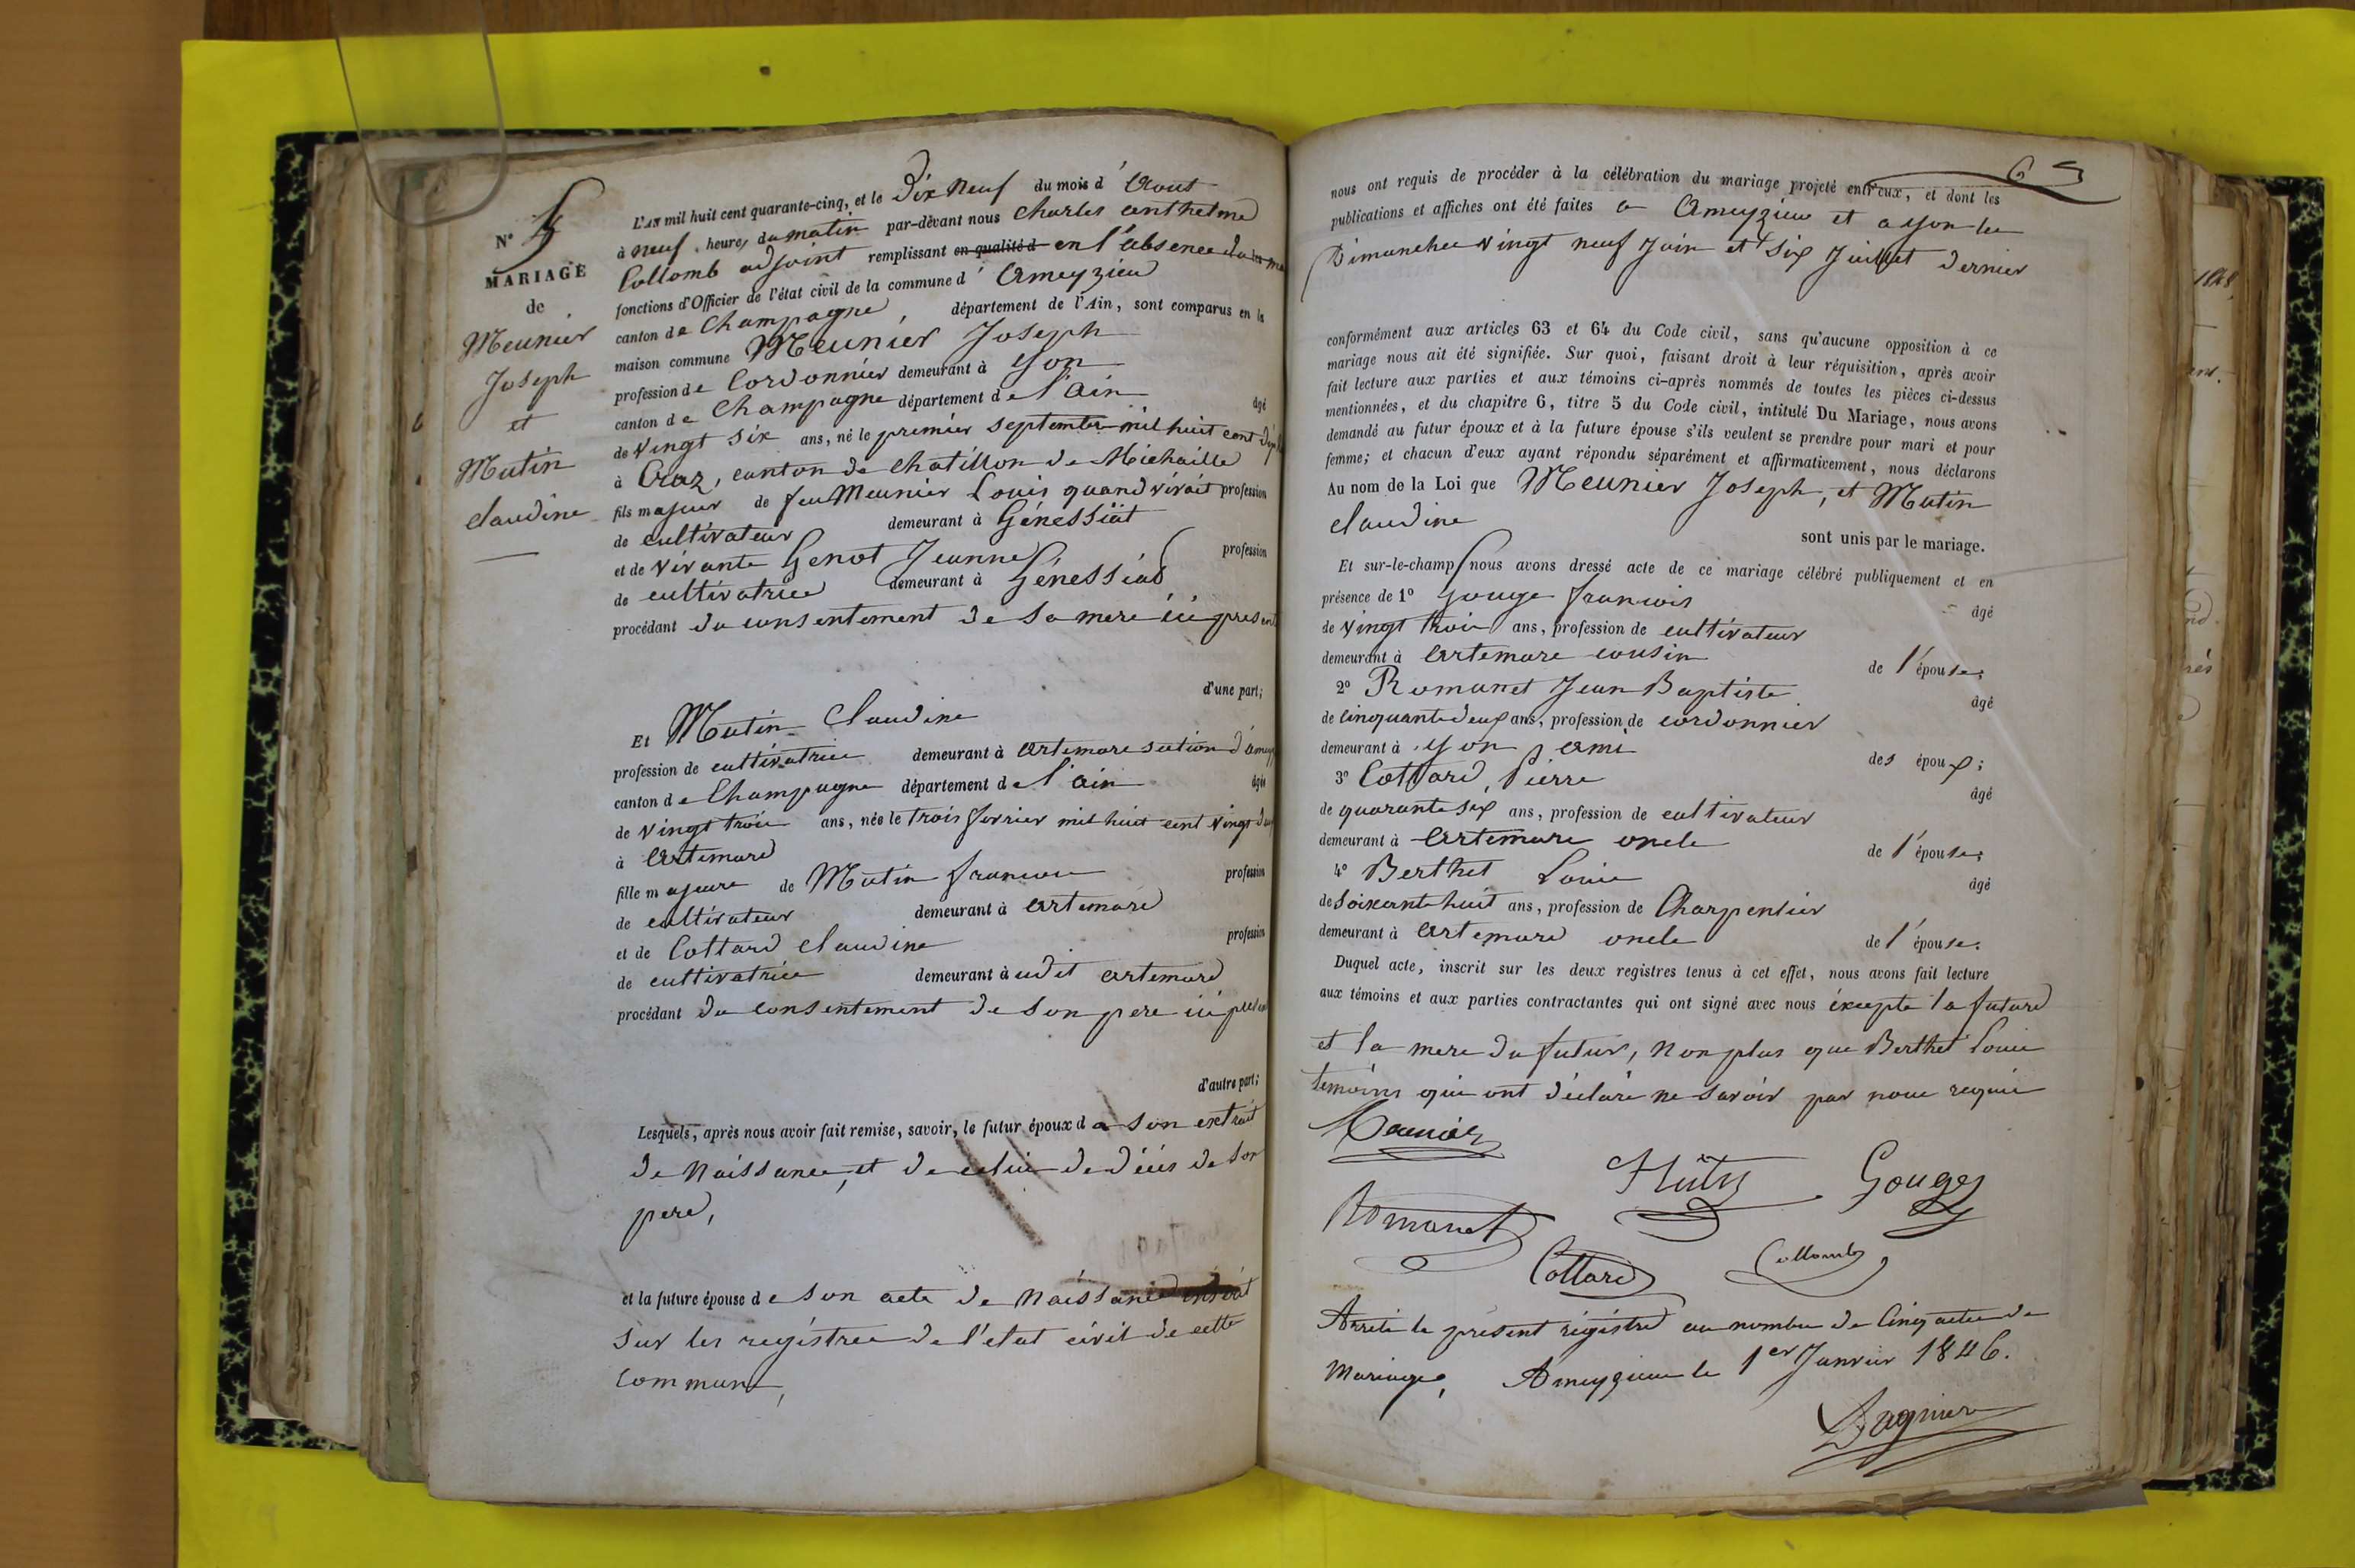 N° 5
MARIAGE
de
Meunier
Joseph
et
Mutin
Claudine
L'AN mil huit cent quarante-cinq, et le Dix Neuf du mois d' Aout
à neuf heures du matin par-dévant nous Charles Anthelme
Collomb adjoint remplissant en qualité d en l'absence du
fonctions d'Officier de l'état civil de la commune d' Ameyzieu
canton de Champagne, département de l'Ain, sont comparus en la
maison commune Meunier Joseph
profession de Cordonnier demeurant à yon
canton de Champagne département de l'ain âgé
de vingt six ans, né le premier septembre mil huit cent
à Craz, canton de Chatillon de Michaille
fils majeur de feu Meunier Louis quand vivait profession
de cultivateur demeurant à Génessiat
et de vivante Genot Jeanne profession
de cultivatrice demeurant à Génessiat
procédant du consentement de sa mere ici present
d'une part;
Et Mutin Claudine
profession de cultivatrice demeurant à artemare section d'
canton de Champagne département de l'ain âgée
de vingt trois ans, née le trois fevrier mil huit cent vingt
à artemare
fille majeure de Mutin francois profession
de cultivateur demeurant à artemare
et de Cottard Claudine profession
de cultivatrice demeurant à udit artemare
procédant du consentement de son pere ici
d'autre part;
Lesquels, après nous avoir fait remise, savoir, le futur époux de son extrait
de Naissance, et de celui de décès de son
pere,
et la future épouse de son acte de Naissance inscrit
sur les registres de l'etat civil de cette
commune,
65
nous ont requis de procéder à la célébration du mariage projeté entr'eux, et dont les
publications et affiches ont été faites a Ameyzieu et a yon les
Dimanches vingt neuf Juin et six Juillet dernier
conformément aux articles 63 et 64 du Code civil, sans qu'aucune opposition à ce
mariage nous ait été signifiée. Sur quoi, faisant droit à leur réquisition, après avoir
fait lecture aux parties et aux témoins ci-après nommés de toutes les pièces ci-dessus
mentionnées, et du chapitre 6, titre 5 du Code civil, intitulé Du Mariage, nous avons
demandé au futur époux et à la future épouse s'ils veulent se prendre pour mari et pour
femme; et chacun d'eux ayant répondu séparément et affirmativement, nous déclarons
Au nom de la Loi que Meunier Joseph, et Mutin
Claudine
sont unis par le mariage.
Et sur-le-champ nous avons dressé acte de ce mariage célébré publiquement et en
présence de 1° Gouge francois âgé
de vingt trois ans, profession de cultivateur
demeurant à artemare cousin de l'épouse;
2° Romanet Jean Baptiste âgé
de cinquante deux ans, profession de cordonnier
demeurant à yon ami des époux;
3° Cottard Pierre âgé
de quarante six ans, profession de cultivateur
demeurant à artemare oncle de l'épouse;
4° Berthet Louis âgé
de soixante huit ans, profession de Charpentier
demeurant à artemare oncle de l'épouse.
Duquel acte, inscrit sur les deux registres tenus à cet effet, nous avons fait lecture
aux témoins et aux parties contractantes qui ont signé avec nous éxcepte la future
et la mere du futur, non plus que Berthet Louis
temoins qui ont déclaré ne savoir par nous requis
Meunier
Gouge
Romanet
Cottard
Collomb
Arreté le présent régistre au nombre de Cinq actes de
Mariages, Ameyzieu le 1er Janvier 1846.
Dagnier